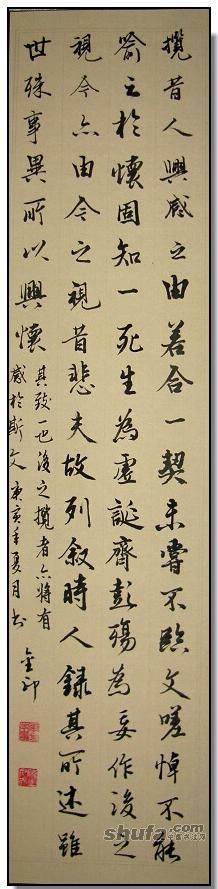 攬昔人興感之由若合一契未嘗不臨文嗟悼不能
喻之於懷固知一死生為虛誕齊彭殤為妄作後之
視今亦由今之視昔悲夫故列敘時人錄其所述雖
世殊事異所以興懷
其致一也後之攬者亦將有
感於斯文 庚寅年夏月書
金印
shufa.com